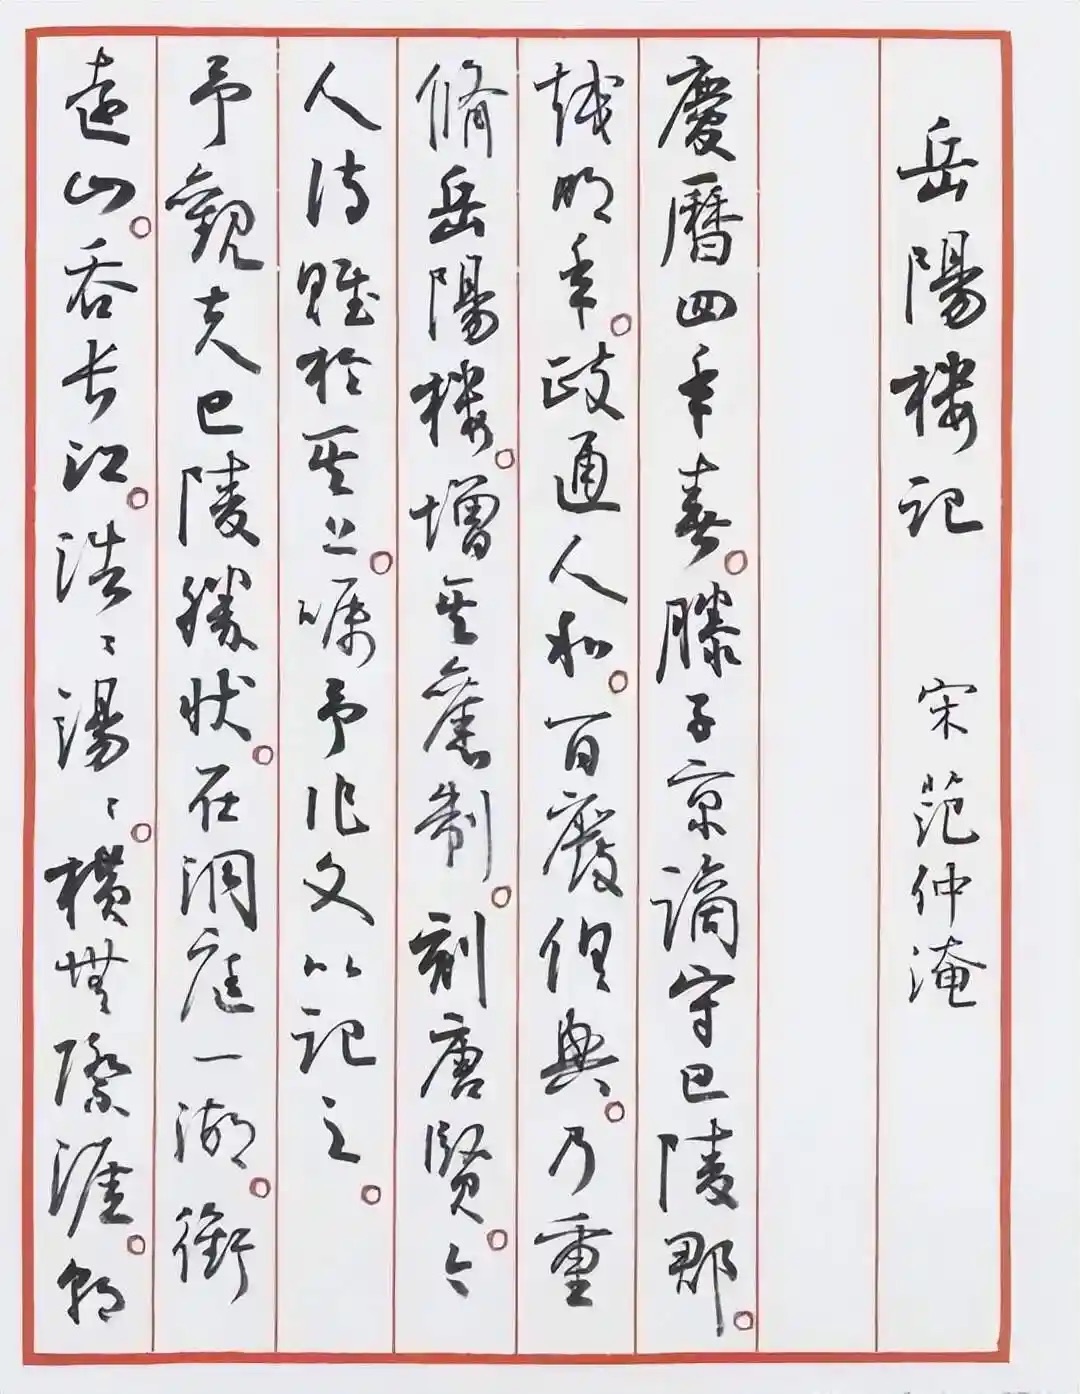 岳陽楼记 宋 范仲淹
慶曆四年春。滕子京謫守巴陵郡。
越明年。政通人和。百廢俱興。乃重
脩岳陽楼。增其舊制。刻唐賢。今
人诗賦於其上。嘱予作文以记之。
予觀夫巴陵勝状。在洞庭一湖。銜
遠山。吞长江。浩〻湯〻。横無際涯。朝